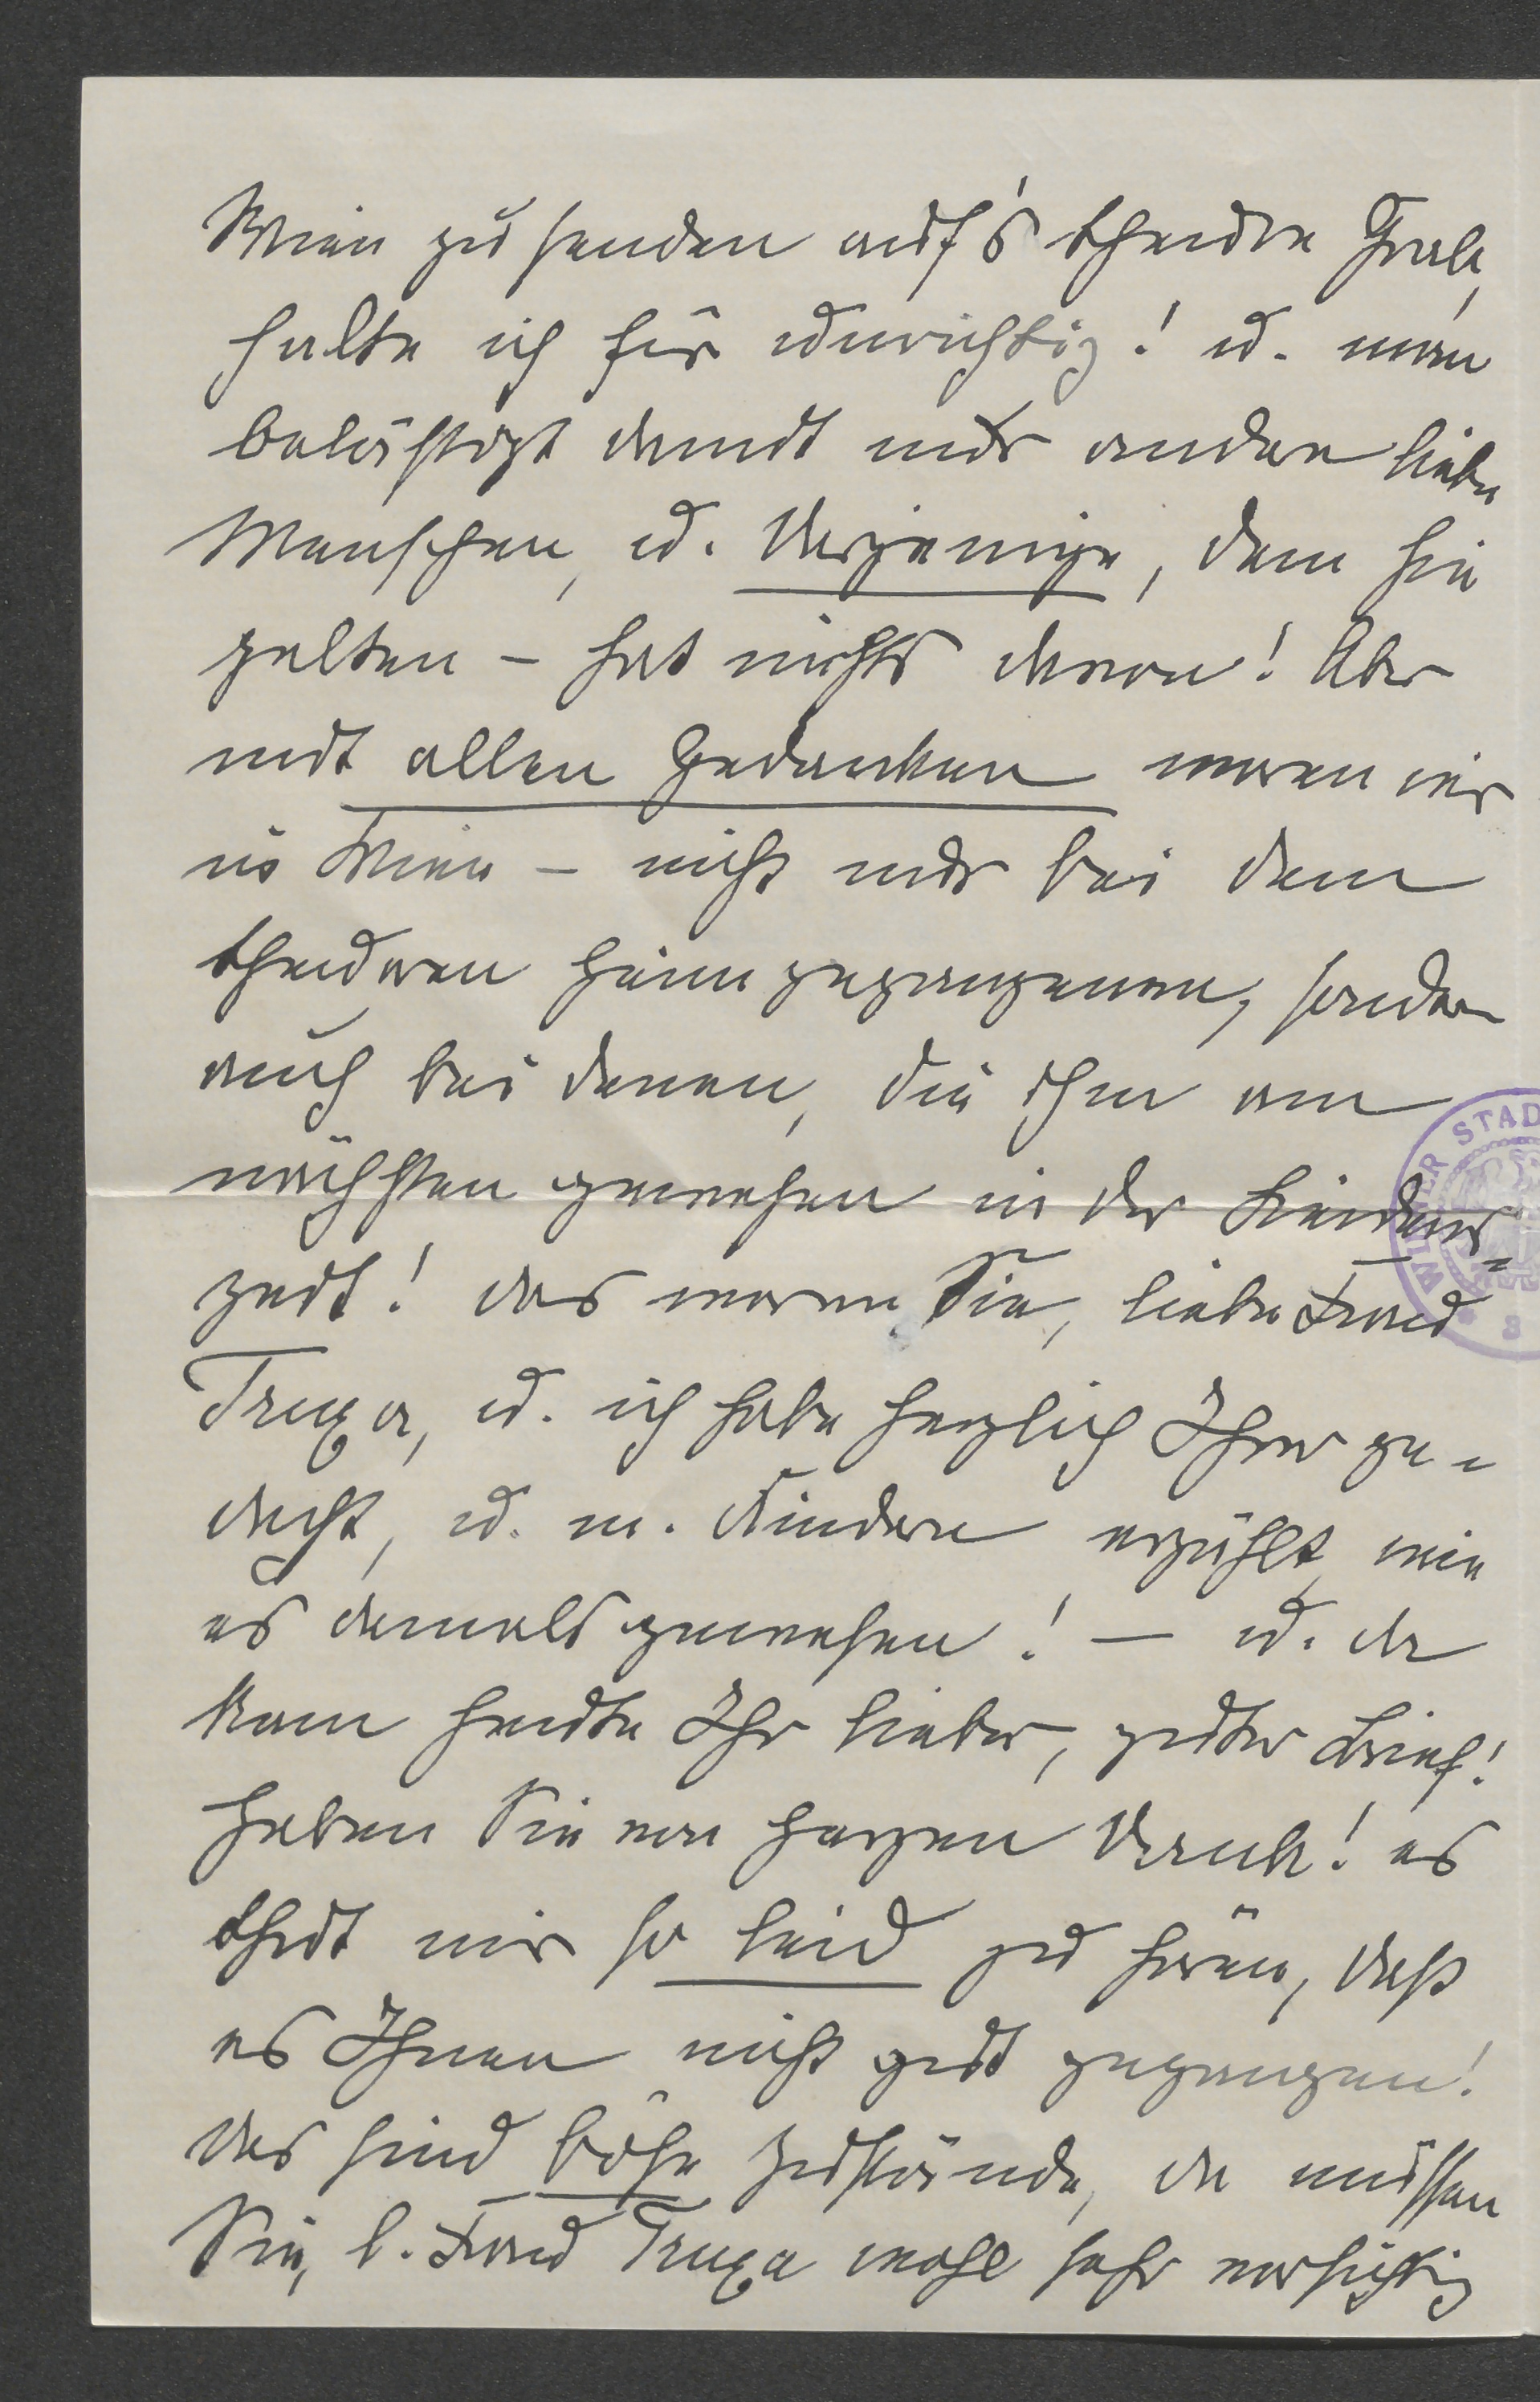 Wien zu senden auf's theure Grab,
halte ich für unrichtig! u. man
belästigt damit nur andere liebe
Menschen, u. Derjenige, dem sie
gelten – hat nichts davon! Aber
mit allen Gedanken waren wir
in Wien – nicht nur bei dem
theueren Heimgegangenen, sondern
auch bei denen, die ihm am
nächsten gewesen in der Leidens-
zeit! das waren Sie, liebe Frau
Truxa, u. ich habe herzlich Ihrer ge-
dacht, u. m. Kindern erzählt, wie
es damals gewesen! – u. da
kam heute Ihr lieber, guter Brief!
Haben Sie von Herzen Dank! es
thut mir so leid zu hören, daß
es Ihnen nicht gut gegangen!
das sind böse Zustände, da müssen
Sie, l. Frau Truxa wohl sehr vorsichtig
WIENER STAD